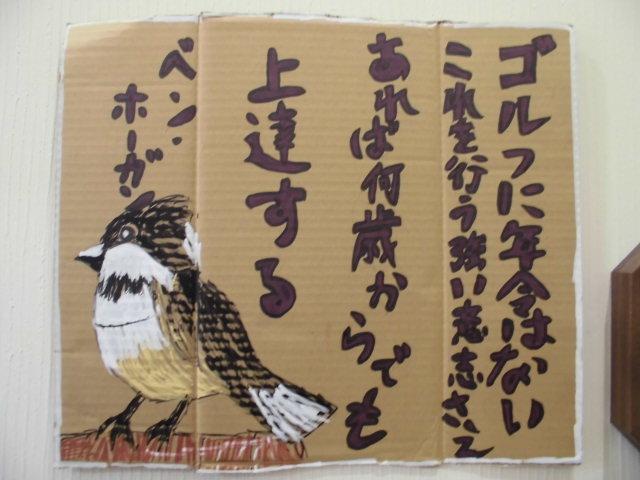 ゴルフに年令はない
これを行う強い意志さえ
あれば何歳からでも
上達する
ベン・
ホーガン